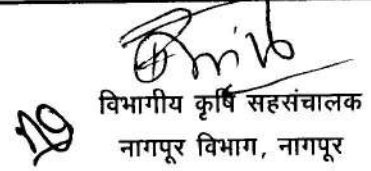 विभागीय कृषि सहसंचालक
नागपूर विभाग, नागपूर